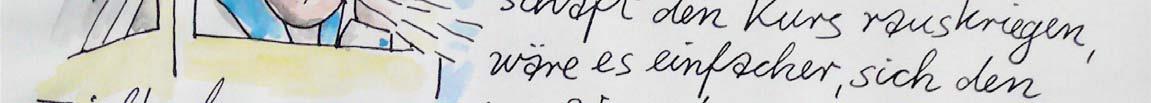 den Kurs rauskriegen,
wäre es einfacher, sich den